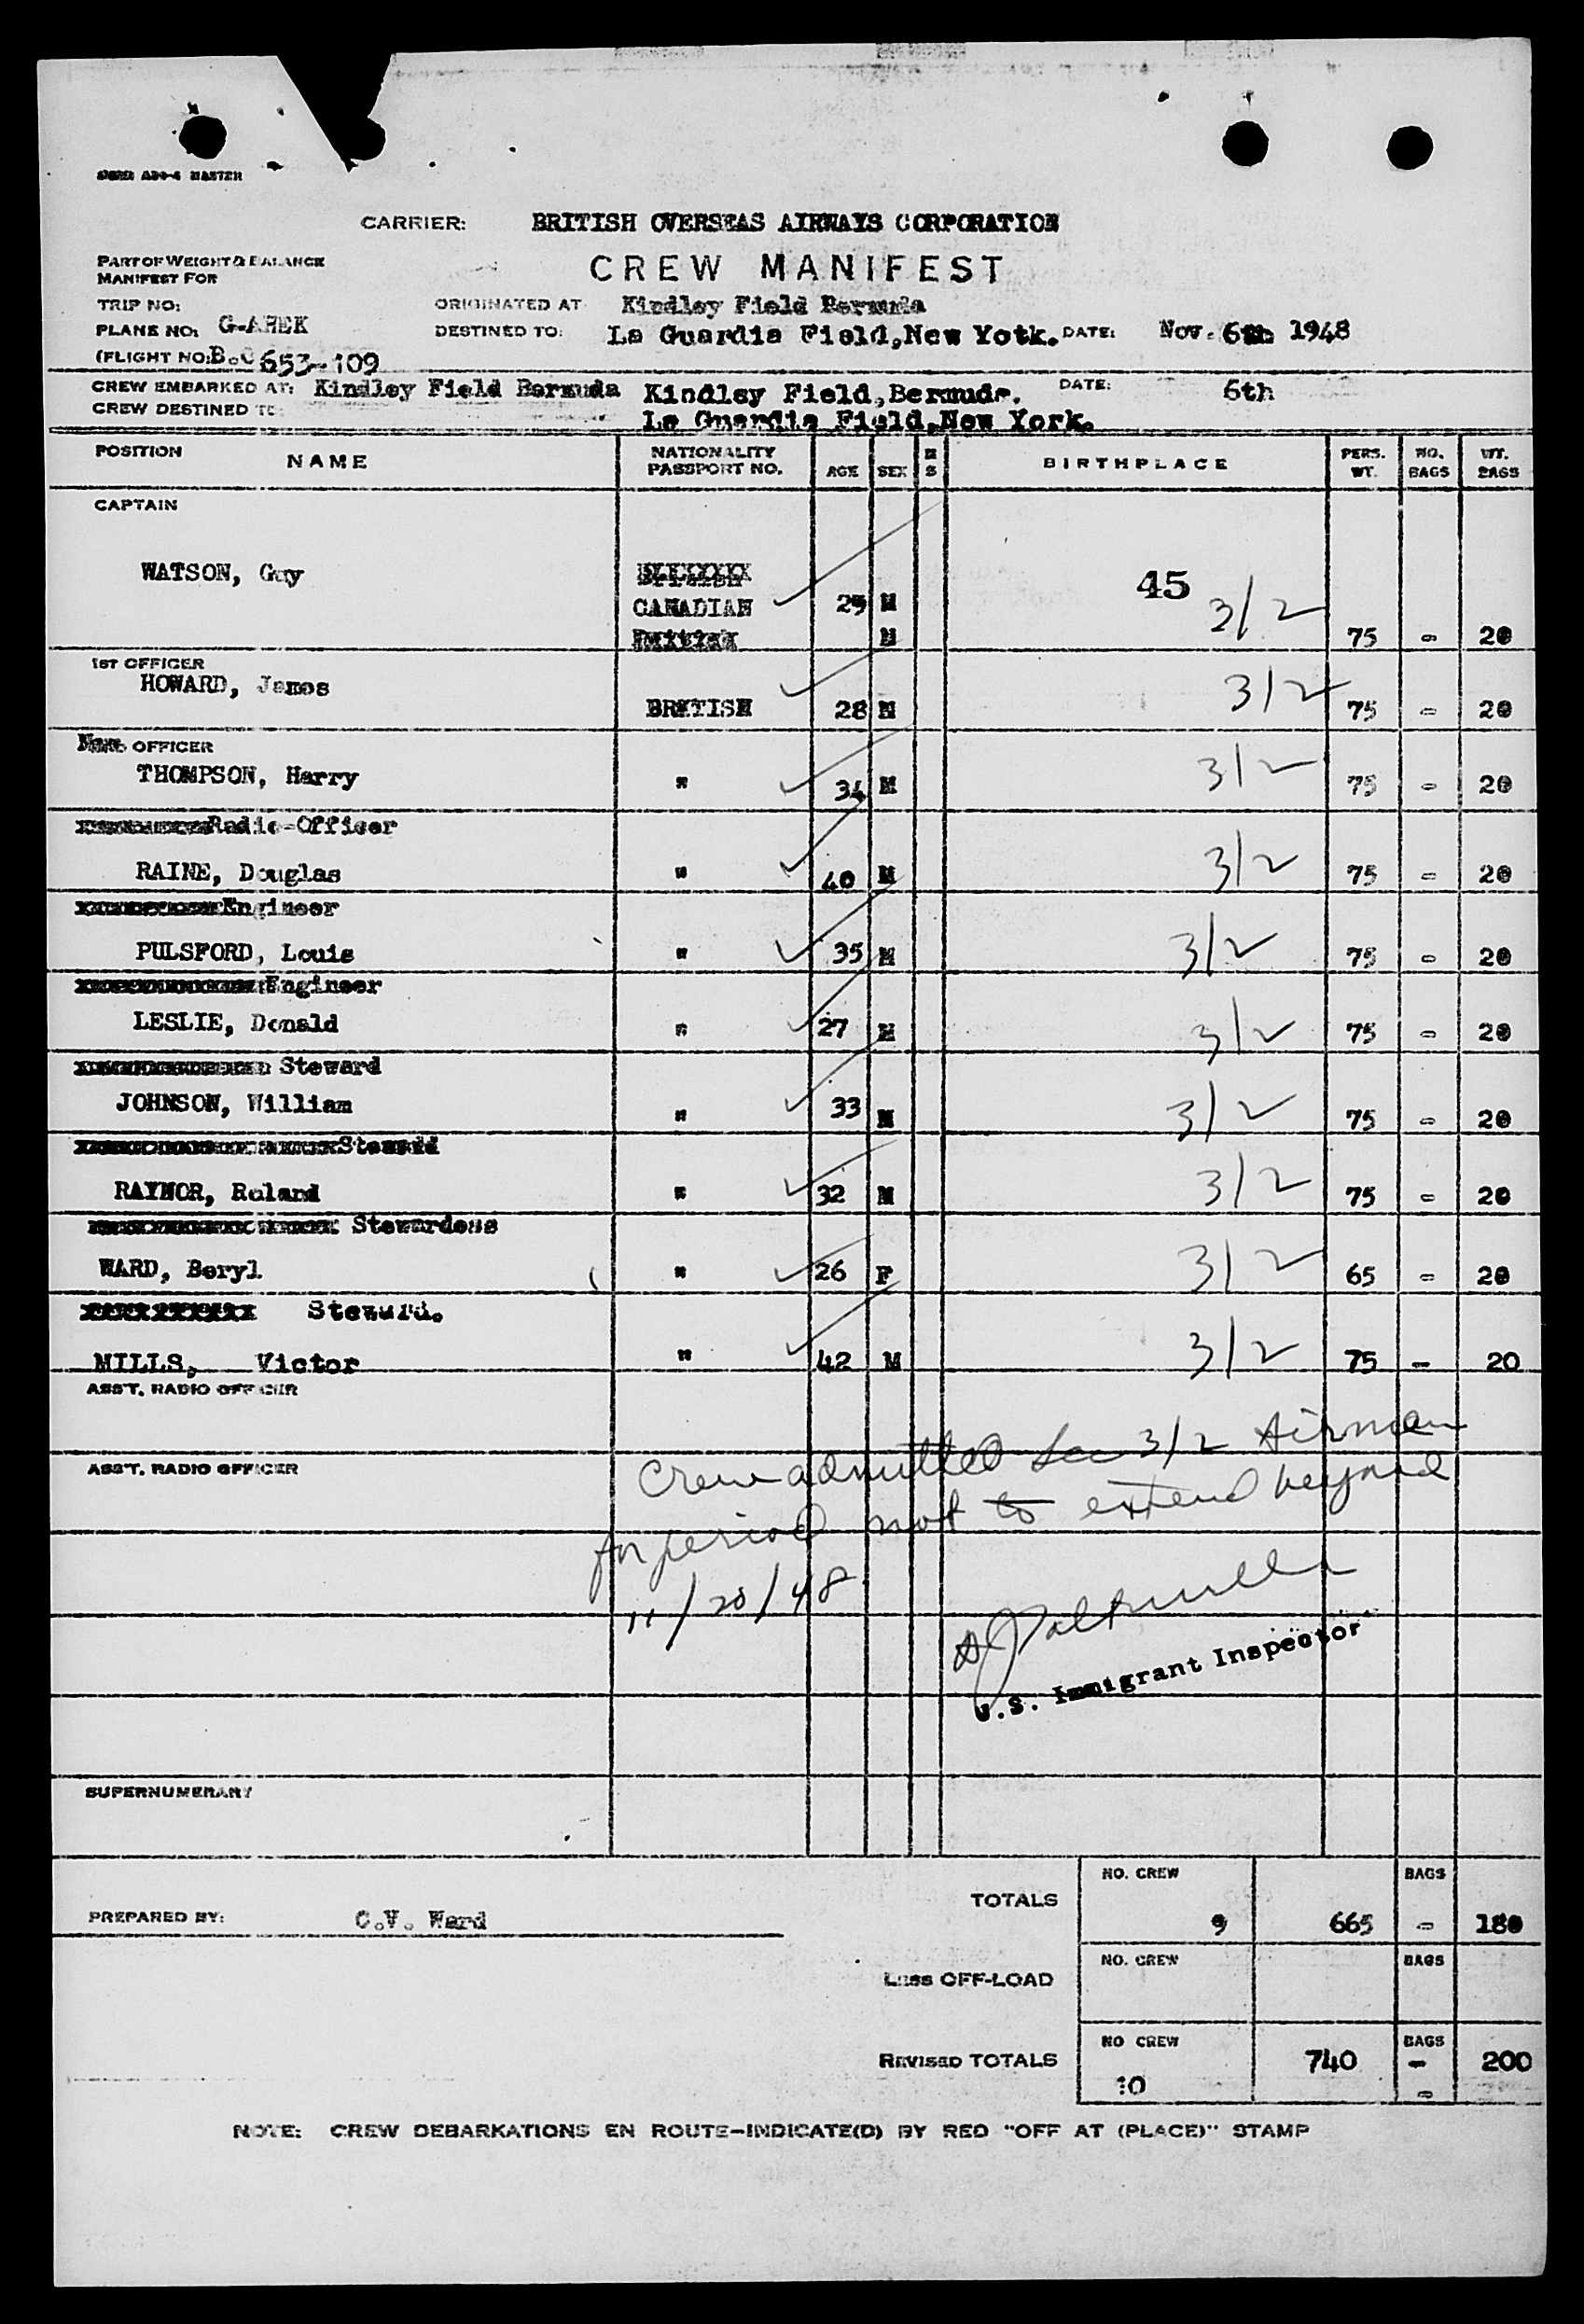 CARRIER: BRITISH OVERSEAS AIRWAYS CORPORATION
PART OF WEIGHT & BALANCE
MANIFEST FOR
CREW MANIFEST
TRIP NO: ORIGINATED AT Kindley Field Bermuda
PLANE NO: G-AHEK DESTINED TO: La Guardia Field,New Yotk. DATE: Nov. 6th 1948
(FLIGHT NO: B.O 653-109
CREW EMBARKED AT: Kindley Field Bermuda Kindley Field,Bermuda. DATE: 6th
CREW DESTINED TO: La Guardia Field,New York.
POSITION NAME NATIONALITY PASSPORT NO. AGE SEX M S BIRTHPLACE PERS. WT. NO. BAGS WT. BAGS
CAPTAIN
WATSON, Guy
CANADIAN 29 M 45 3/2
British M 75 - 20
1ST OFFICER
HOWARD, James BRITISH 28 M 3/2 75 - 20
Nav. OFFICER
THOMPSON, Harry " 34 M 3/2 75 - 20
Radio-Officer
RAINE, Douglas " 40 M 3/2 75 - 20
Engineer
PULSFORD, Louis " 35 M 3/2 75 - 20
Engineer
LESLIE, Donald " 27 M 3/2 75 - 20
Steward
JOHNSON, William " 33 M 3/2 75 - 20
Steward
RAYNOR, Roland " 32 M 3/2 75 - 20
Stewardess
WARD, Beryl " 26 F 3/2 65 - 20
Steward.
MILLS, Victor " 42 M 3/2 75 - 20
ASS'T. RADIO OFFICER
ASS'T. RADIO OFFICER
Crew admitted Sec 3/2 Airmen
for period not to extend beyond
11/20/48
U.S. Immigrant Inspector
SUPERNUMERARY
TOTALS NO. CREW 9 665 BAGS - 180
PREPARED BY: C.V. Ward
Less OFF-LOAD NO. CREW BAGS
REVISED TOTALS NO CREW 10 740 BAGS - - 200
NOTE: CREW DEBARKATIONS EN ROUTE-INDICATE(D) BY RED "OFF AT (PLACE)" STAMP